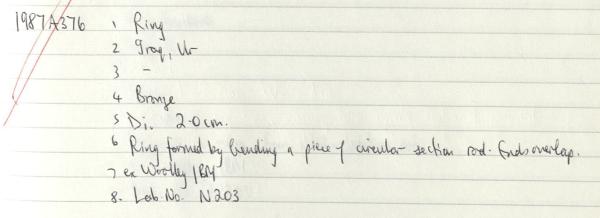 1987A376 1 Ring
2 Iraq, Ur
3 -
4 Bronze
5 Di. 2.0cm.
6 Ring formed by bending a piece of circular section rod. Ends overlap.
7 ex Woolley/BM
8. Lab. No. N203